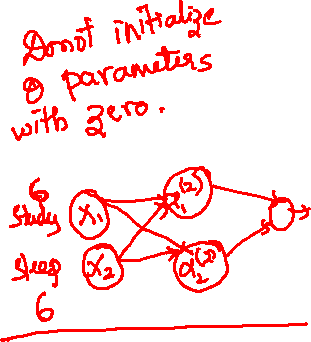 Donot initialize
θ parameters
with zero.
6
Study x₁ a₁⁽²⁾
Sleep x₂ a₂⁽²⁾
6